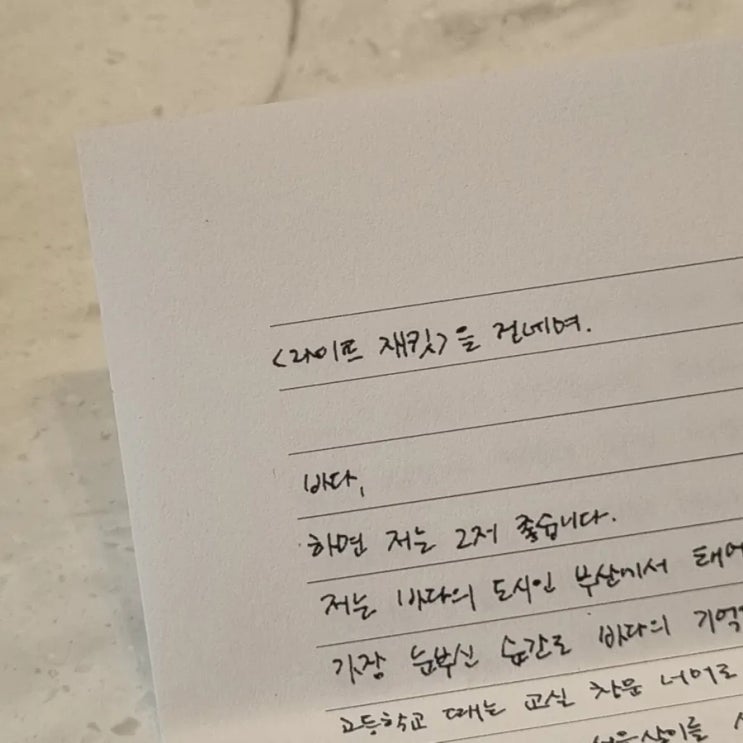 <라이프 재킷>을 건네며.
바다,
하면 저는 그저 좋습니다.
저는 바다의 도시인 부산에서 태어
가장 눈부신 순간도 바다의 기억
고등학교 때는 교실 창문 너머로